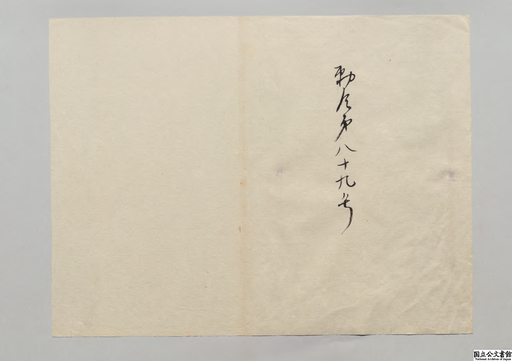 勅令第八十九号
国立公文書館
National Archives of Japan